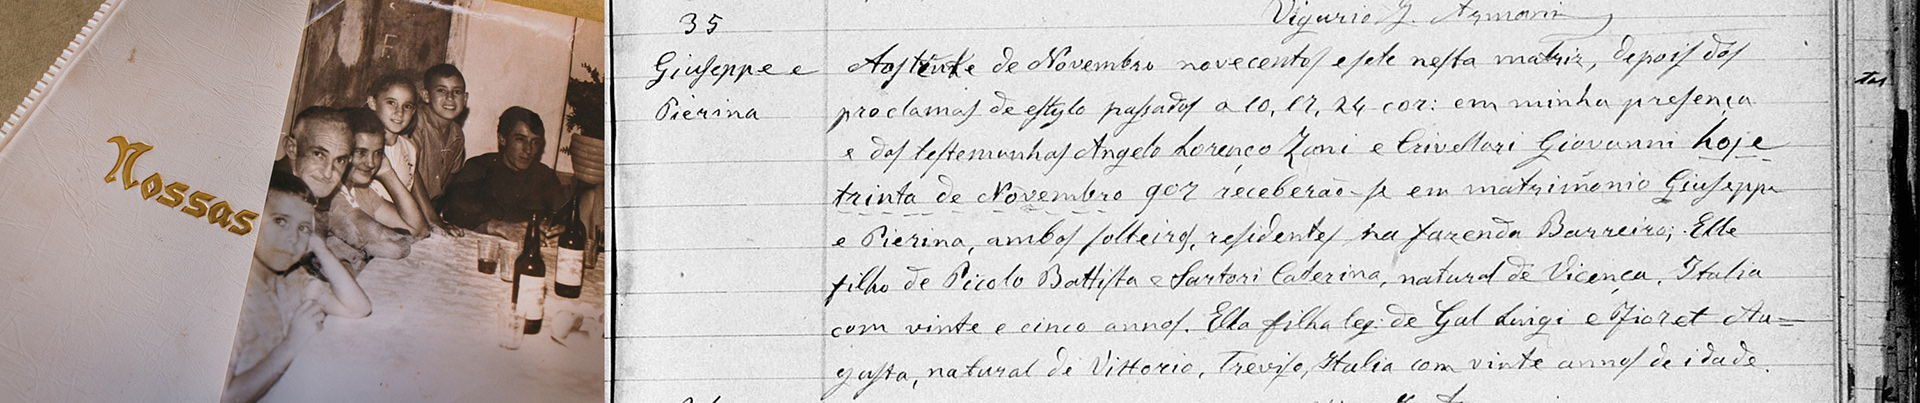 Nossas
35
Vigario J. Armani
Giuseppe e
Pierina
Aos trinta de Novembro novecentos e sete nesta matriz, depois dos
proclamas de estylo passados a 10, 17, 24 cor: em minha presença
e dos testemunhas Angelo Lorenço Zoni e Crivellari Giovanni hoje
trinta de Novembro 907 receberão-se em matrimonio Giuseppe
e Pierina, ambos solteiros, residentes na fazenda Barreiro; Elle
filho de Picolo Battista e Sartori Caterina, natural de Vicença, Italia
com vinte e cinco annos. Ella filha leg: de Gal Luigi e Fioret Au=
gusta, natural de Vittorio, Treviso, Italia com vinte annos de idade.